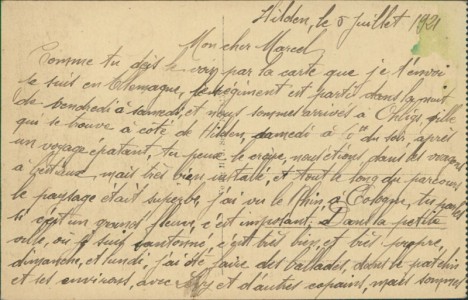 Hilden, le 5 Juillet 1921
Mon cher Marcel
Comme tu dois le voir par la carte que je t'envoi
je suis en Allemagne, le regiment est partit dans la nuit
de vendredi à samedi, et nous sommes arrivés à Ohligs, ville
qui se trouve a coté de Hilden, samedi à du soir, après
un voyage épatant, tu peux le croire, nous étions dans les wagons
à bestiaux mais très bien installé, et tout le long du parcours
le paysage était superbe, j'ai vu le Rhin, à Cologne, tu parles
si c'est un grand fleuve, c'est imposant. Dans la petite
ville, ou je suis cantonné, c'est très bien, et très propre,
dimanche, et lundi, j'ai été faire des ballades, dans le patelin
et ses environs, avec et d'autres copains, mais sommes